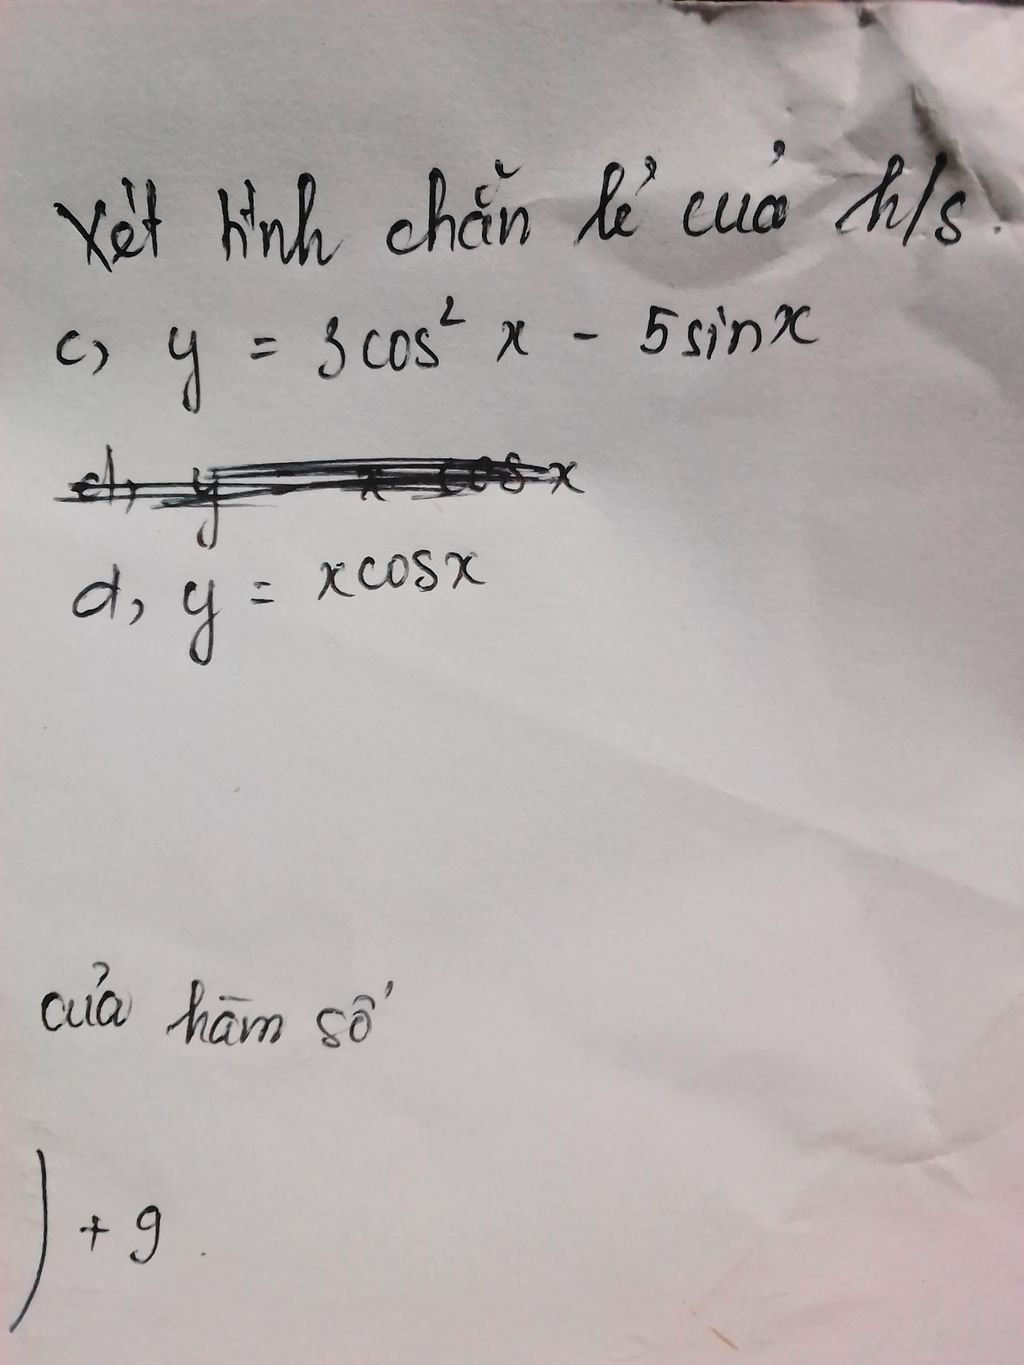 Xét tính chẵn lẻ của h/s.
c, y = 3cos² x - 5sinx
d, y x cos x
d, y = xcosx
của hàm số
) + 9